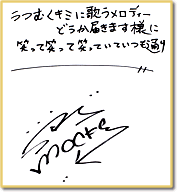 うつむくキミに歌うメロディー
どうか届きます様に
笑って笑って笑っていていつも通り
mocte